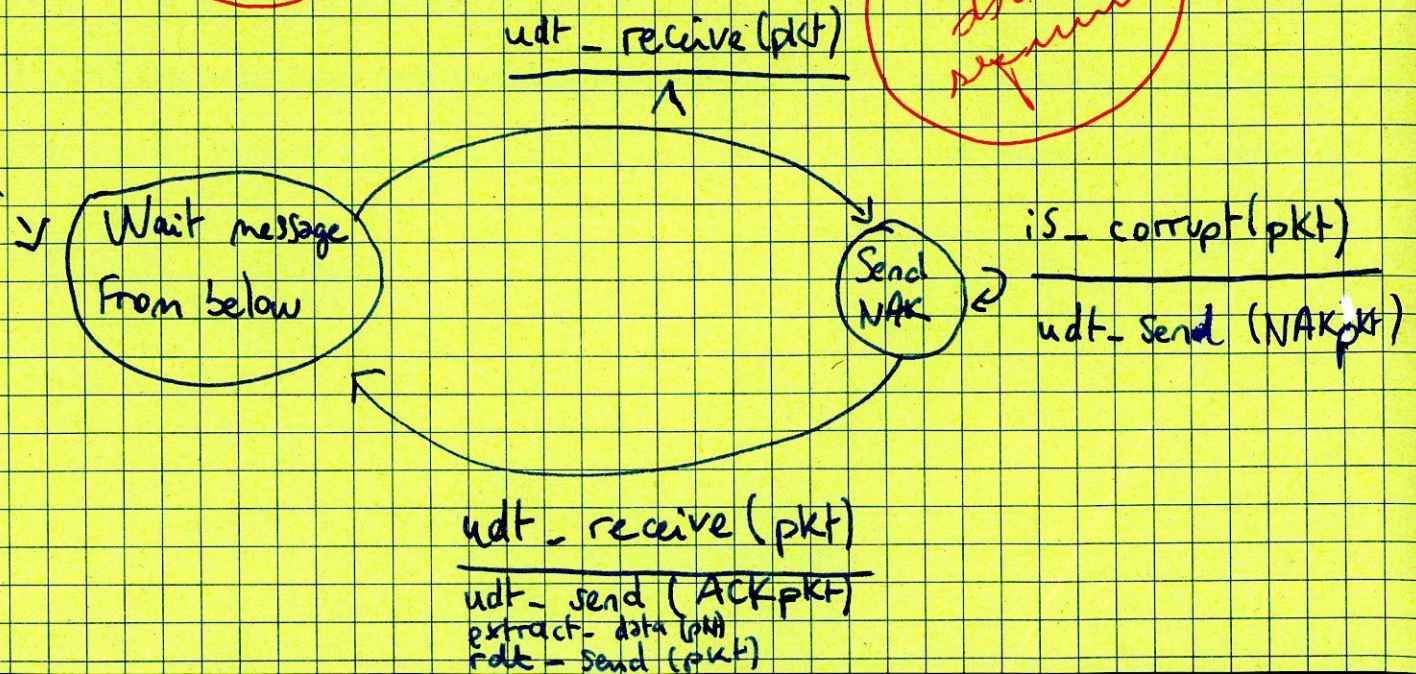 udt_receive(pkt)
Λ
Wait message
From below
Send
NAK
is_corrupt(pkt)
udt_send (NAKpkt)
udt_receive (pkt)
udt_send (ACKpkt)
extract_data (pkt)
rdt_send (pkt)